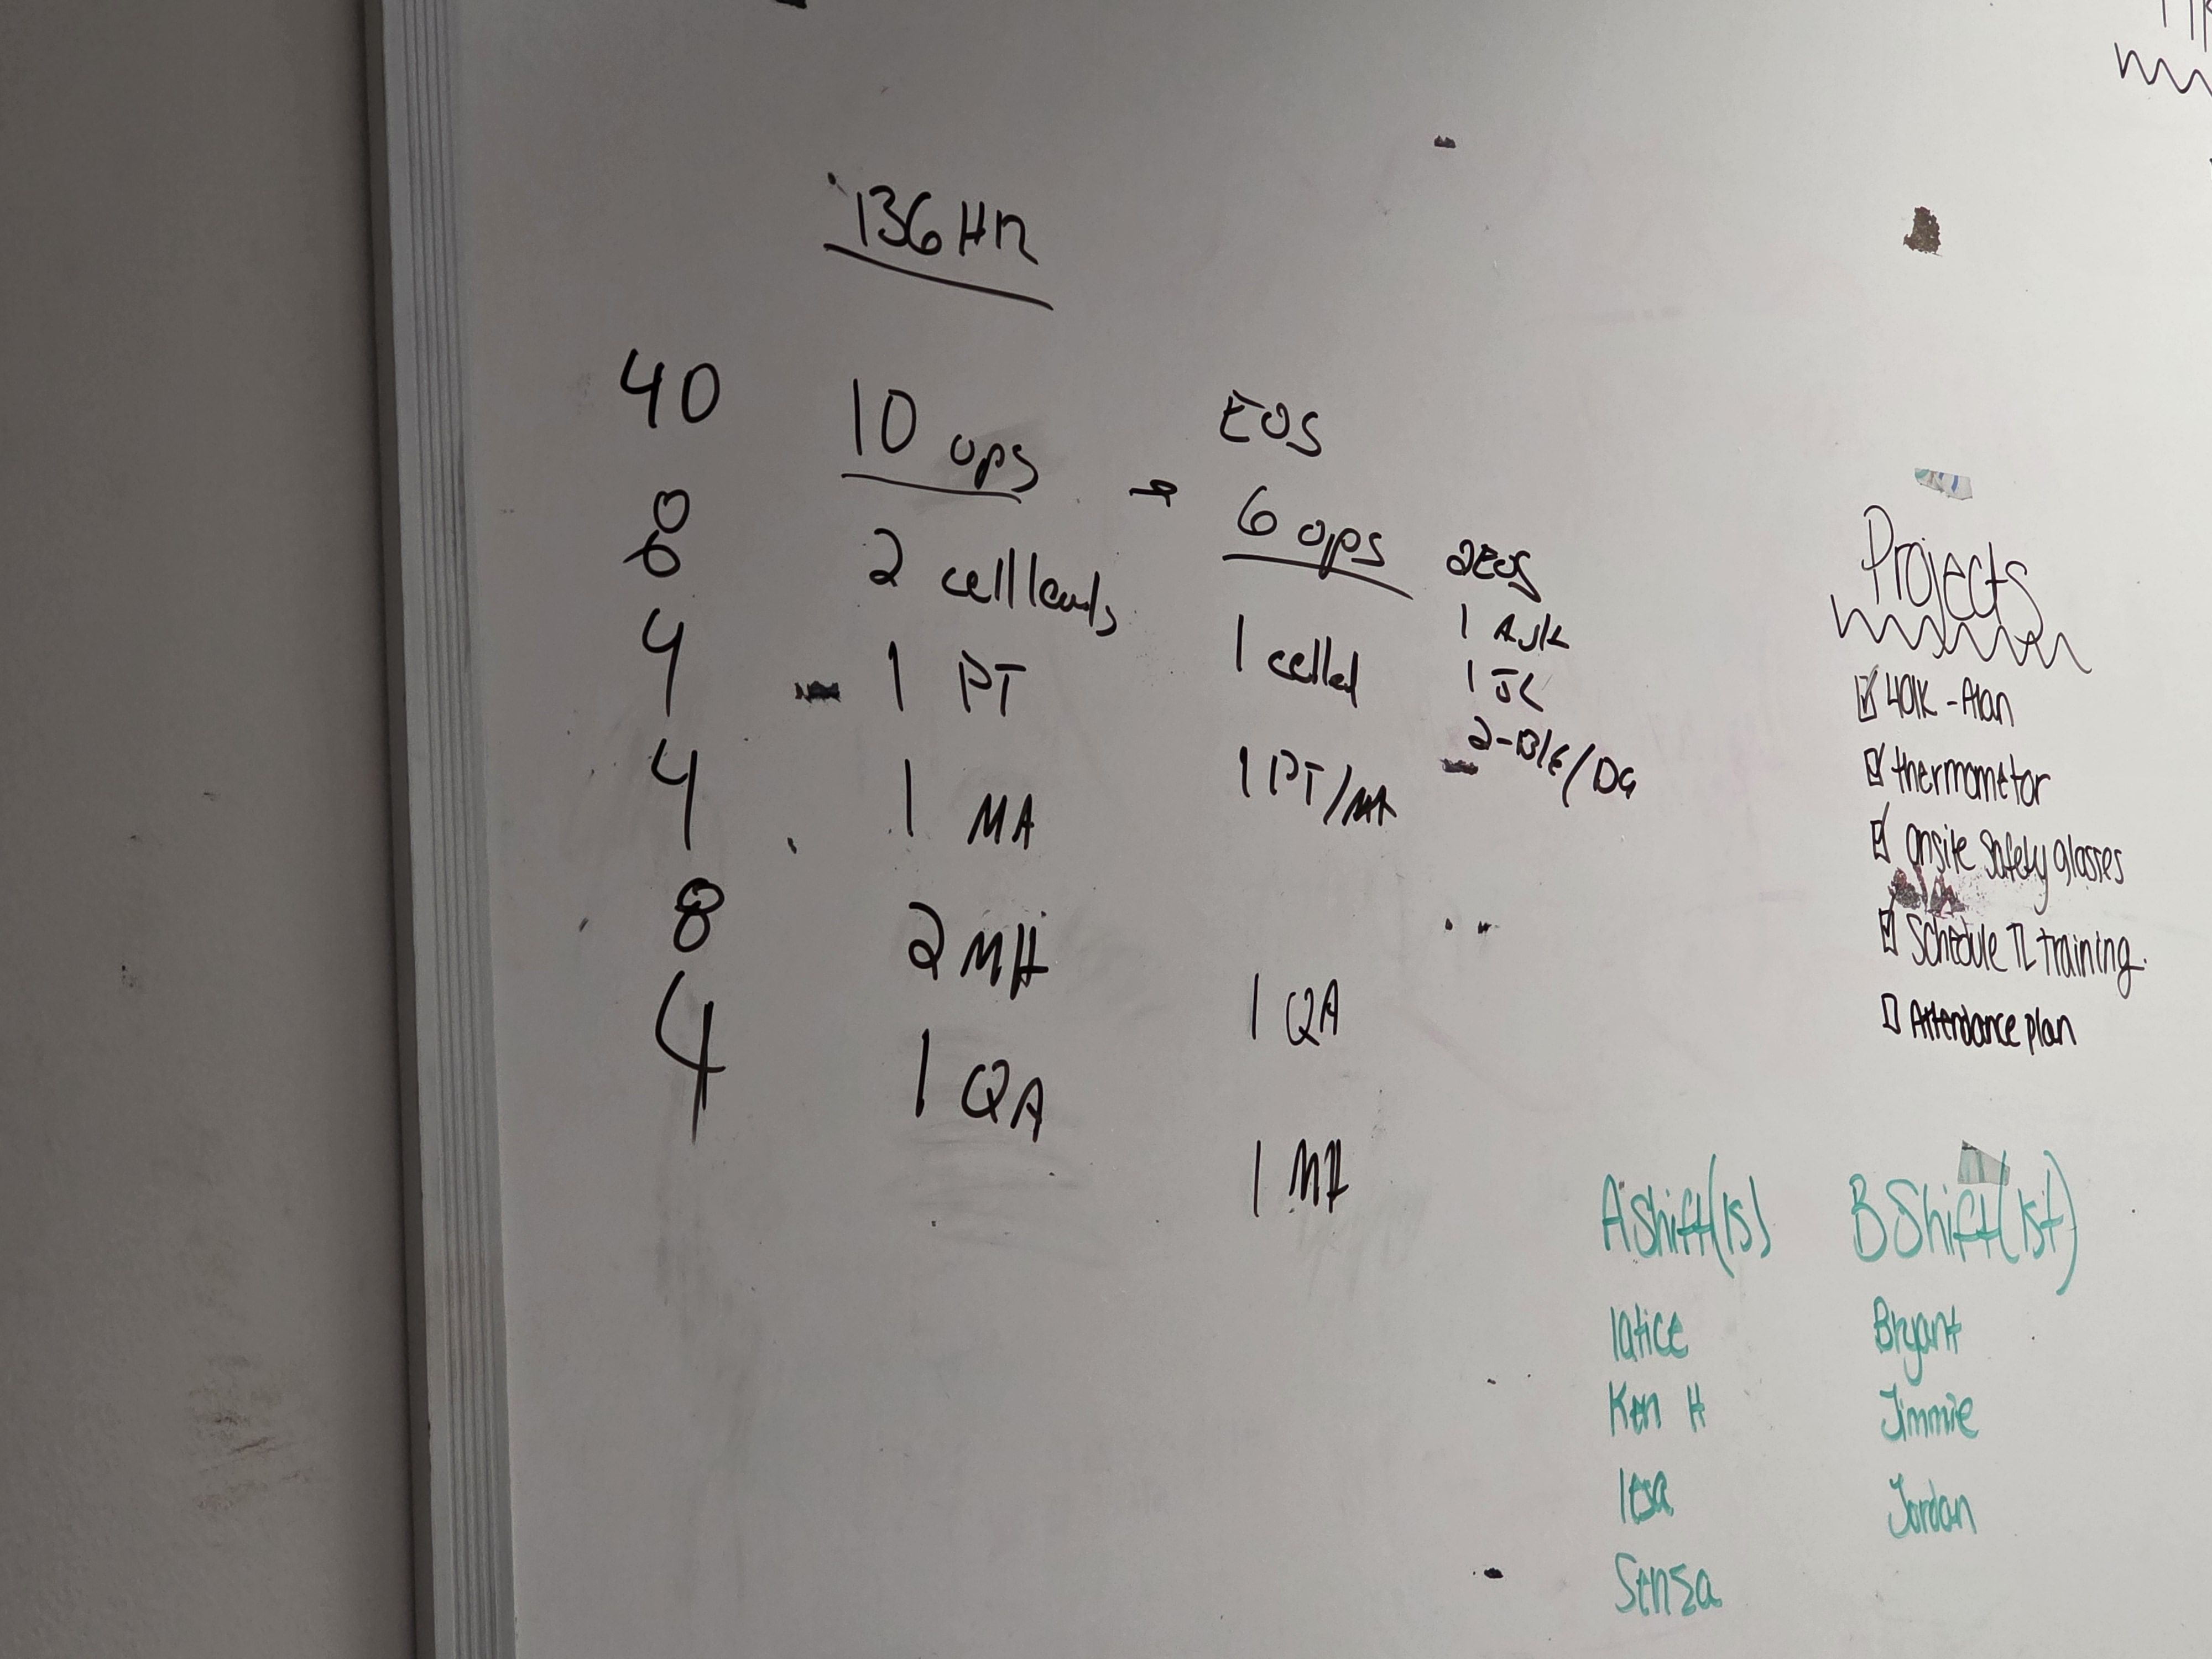 136 HR
40 10 ops
8 2 cell leads
4 1 PT
4 1 MA
8 2 MH
4 1 QA
EOS
→ 6 ops
1 cell ld
1 PT/MA
1 QA
1 MH
2 EOS
1 JC
Projects
☑ 401K - Plan
☑ thermometor
☑ Onsite Safety glasses
☑ Schedule TL training.
☐ Attendance plan
A Shift (1s)
latice
Ken H
Senza
B Shift (1st)
Bryant
Jimmie
Jordan